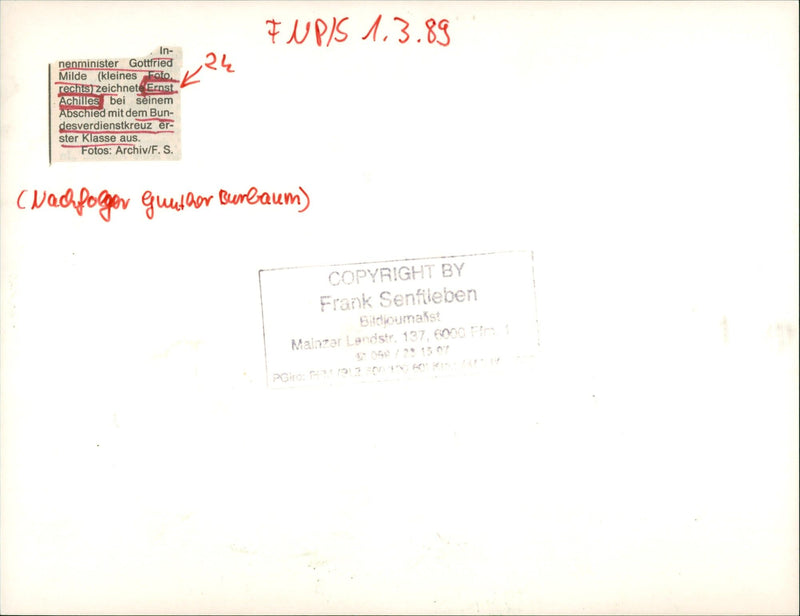 FNP/S 1.3.89
In-
nenminister Gottfried
Milde (kleines Foto,
rechts) zeichnete Ernst
Achilles bei seinem
Abschied mit dem Bun-
desverdienstkreuz er-
ster Klasse aus.
Fotos: Archiv/F. S.
(Nachfolger
COPYRIGHT BY
Frank Senftleben
Bildjournalist
Mainzer Landstr. 137, 6000 Ffm. 1